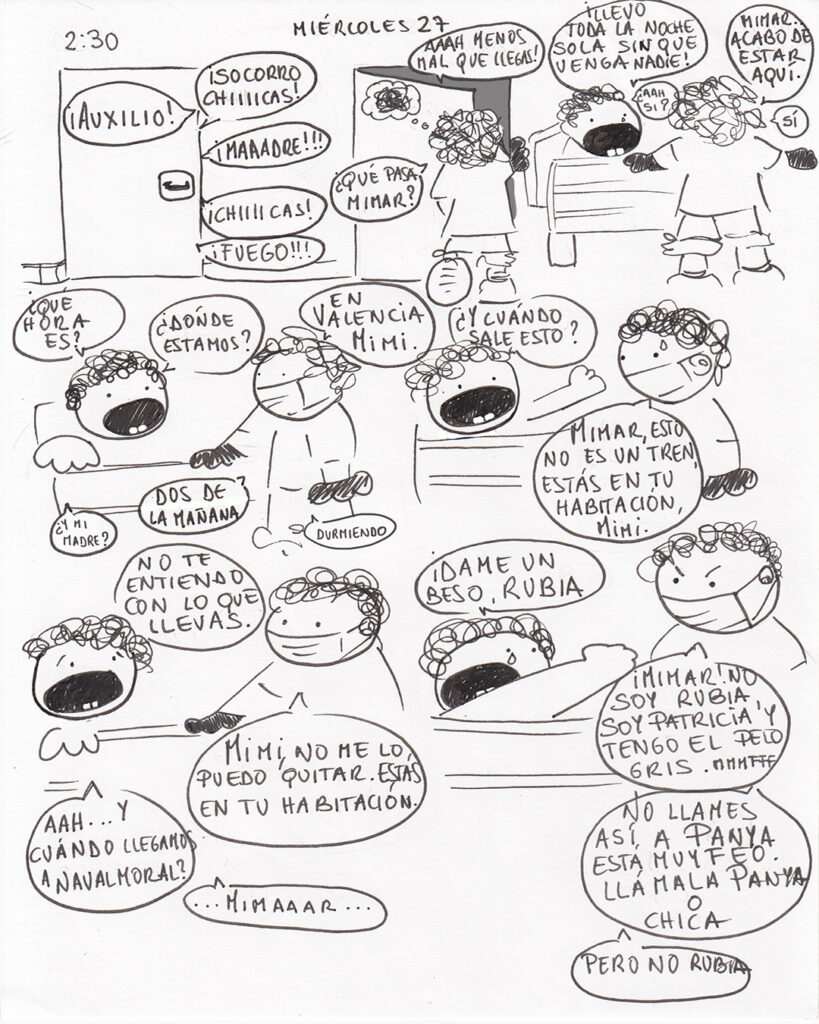 2:30
MIÉRCOLES 27
¡AUXILIO!
¡SOCORRO
CHIIIICAS!
¡MAAADRE!!!
¡CHIIIICAS!
¡FUEGO!!!
AAAH MENOS
MAL QUE LLEGAS!
¿QUÉ PASA,
MIMAR?
¡LLEVO
TODA LA NOCHE
SOLA SIN QUE
VENGA NADIE!
MIMAR...
ACABO DE
ESTAR
AQUÍ.
¿AAH
SI?
SÍ
¿QUE
HORA
ES?
¿DÓNDE
ESTAMOS?
EN
VALENCIA
MIMI.
DOS DE
LA MAÑANA
¿Y MI
MADRE?
DURMIENDO
¿Y CUÁNDO
SALE ESTO?
MIMAR, ESTO
NO ES UN TREN,
ESTÁS EN TU
HABITACIÓN,
MIMI.
NO TE
ENTIENDO
CON LO QUE
LLEVAS.
MIMI, NO ME LO
PUEDO QUITAR. ESTÁS
EN TU HABITACIÓN.
AAH... Y
CUÁNDO LLEGAMOS
A NAVALMORAL?
...MIMAAAR...
¡DAME UN
BESO, RUBIA
¡MIMAR! NO
SOY RUBIA,
SOY PATRICIA Y
TENGO EL PELO
GRIS. MMMFFF
NO LLAMES
ASÍ, A PANYA
ESTÁ MUY FEO.
LLÁMALA PANYA
O
CHICA
PERO NO RUBIA